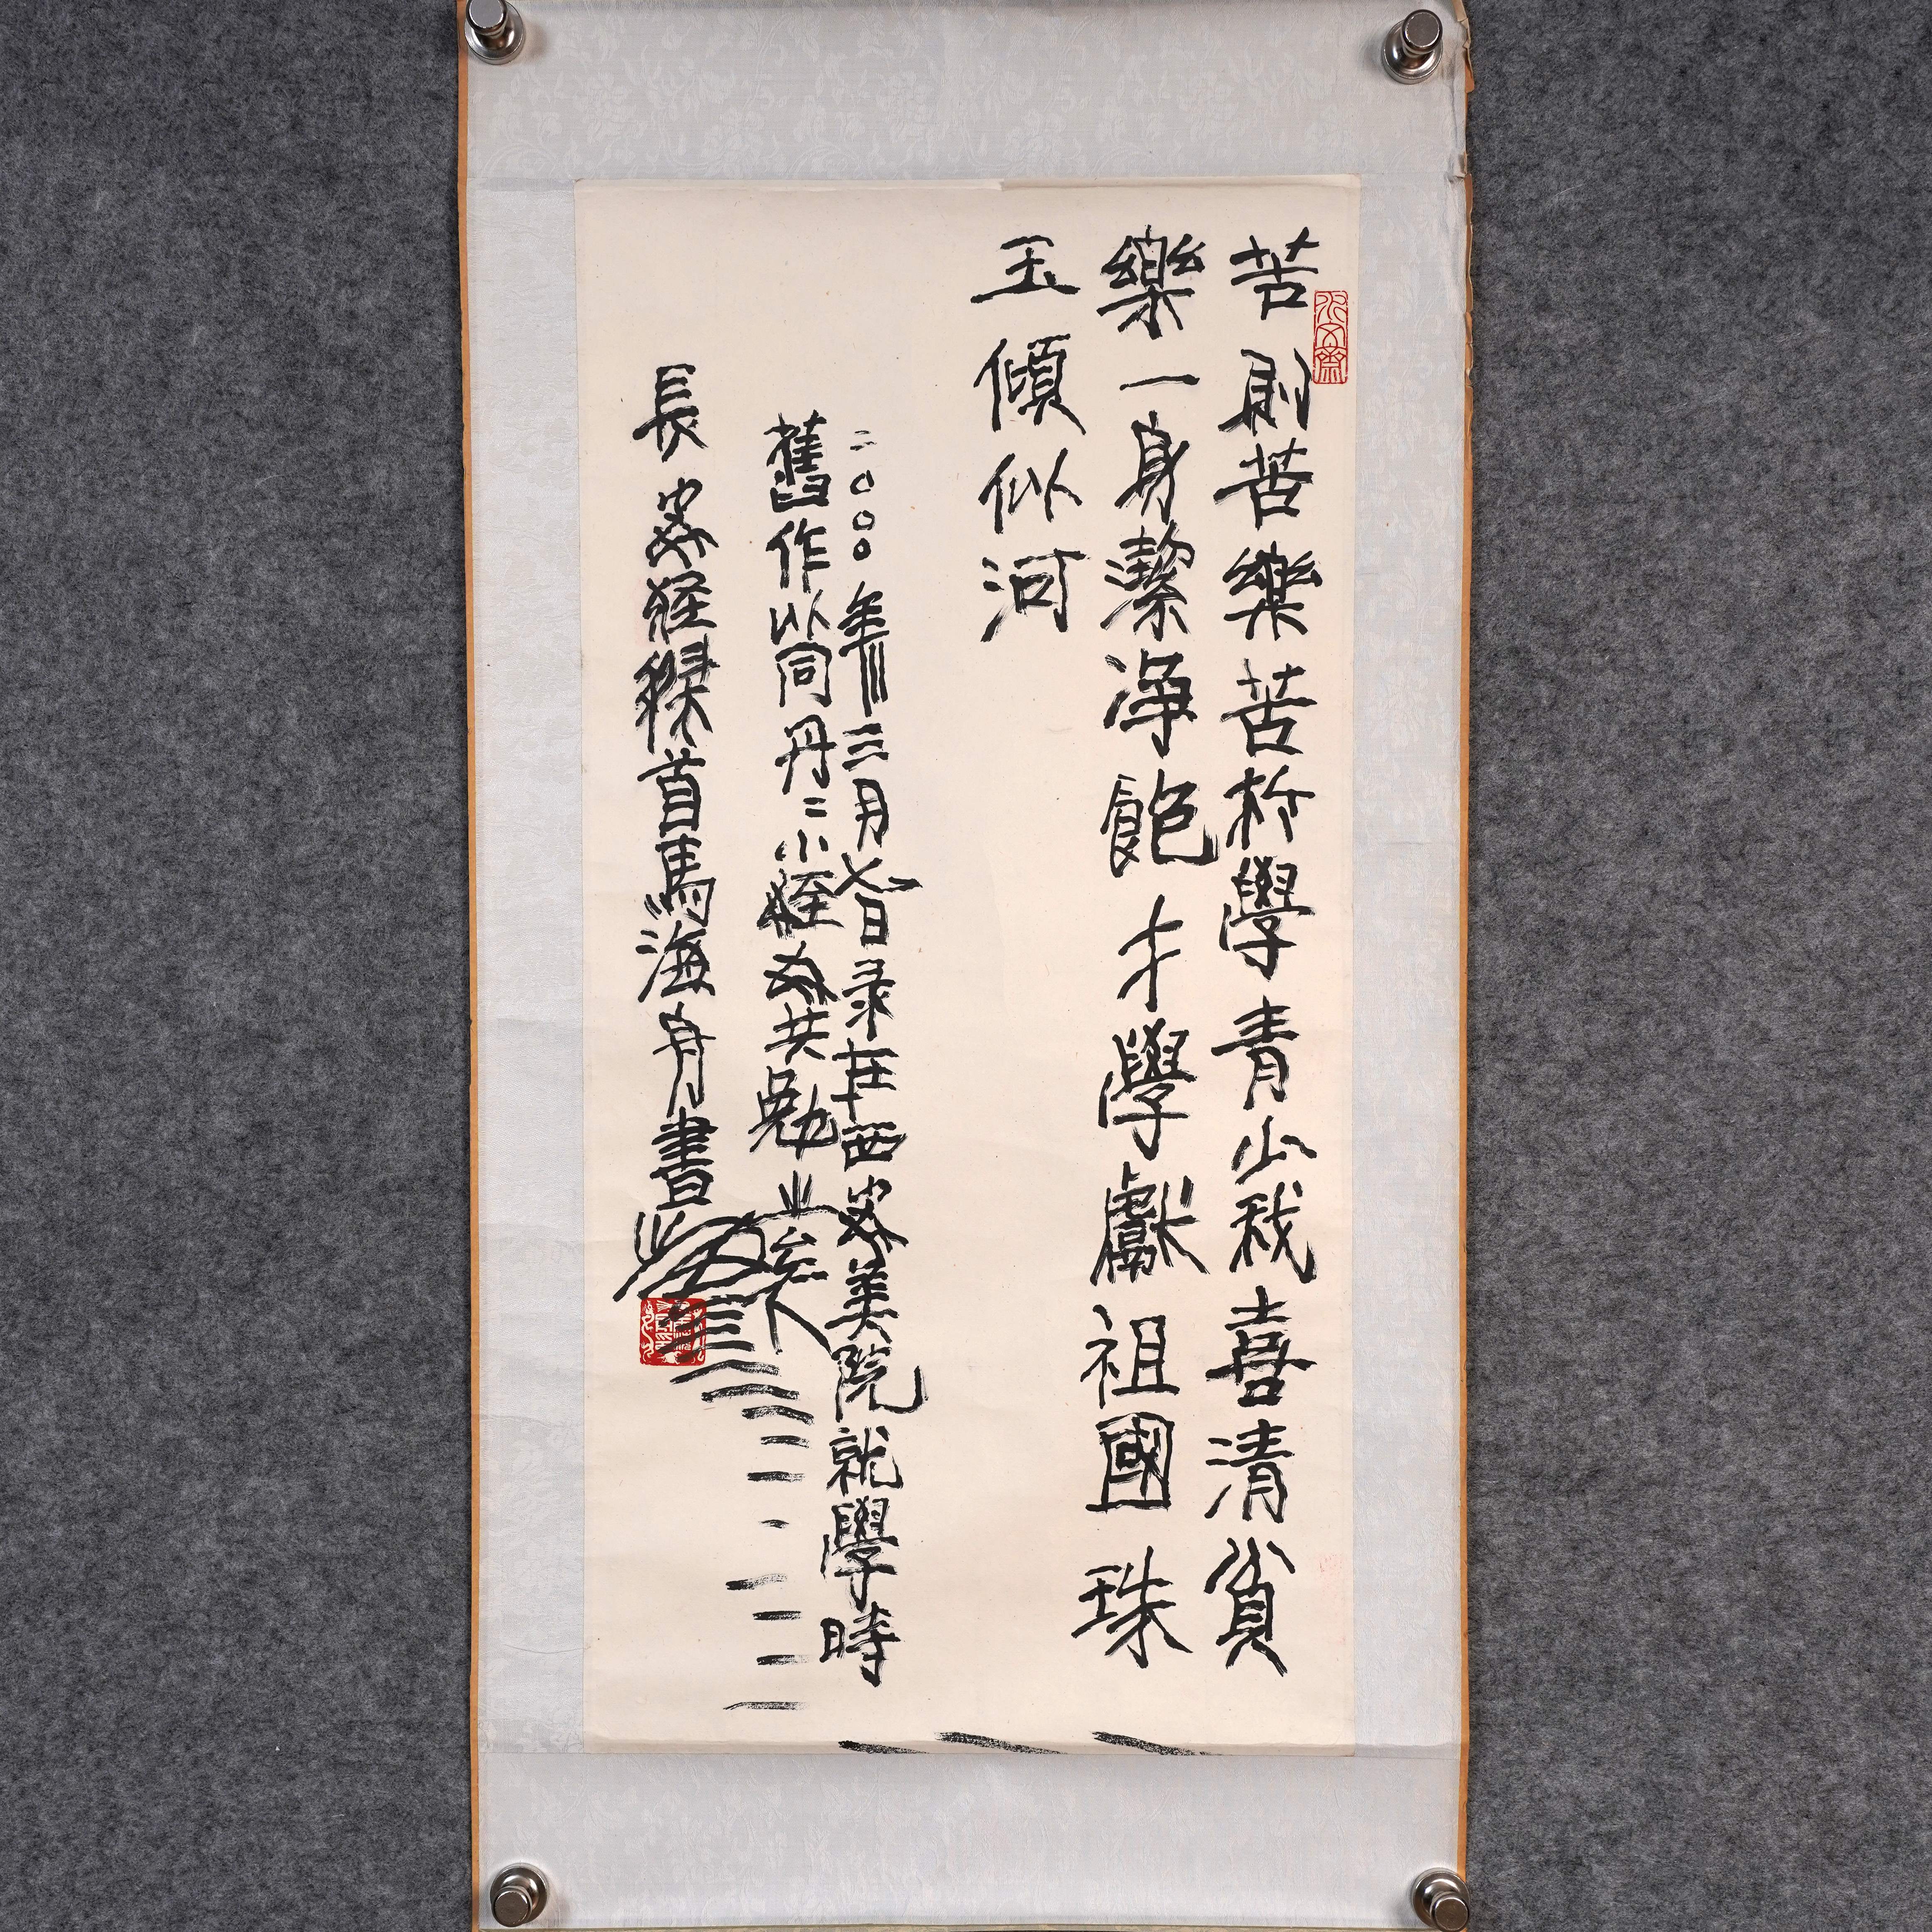 苦則苦樂苦於學青山我喜清貧
樂一身潔净飽才學獻祖國珠
玉傾似河
二〇〇〇年三月七日录在西安美院就學時
舊作以同丹二小姪女共勉
長安 首馬海舟書